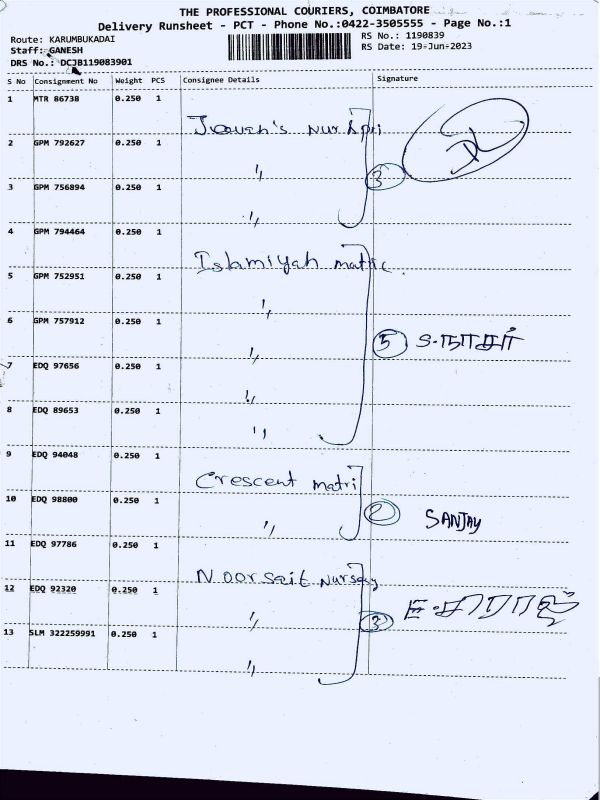 THE PROFESSIONAL COURIERS, COIMBATORE
Delivery Runsheet - PCT - Phone No.:0422-3505555 - Page No.:1
Route: KARUMBUKADAI
RS No.: 1190839
Staff: GANESH
RS Date: 19-Jun-2023
DRS No.: DCJB119083901
S No Consignment No Weight PCS Consignee Details Signature
1 MTR 86738 0.250 1
Nur &pri
2 GPM 792627 0.250 1
〃
3 GPM 756894 0.250 1
3
〃
4 GPM 794464 0.250 1
Islamiyah matric.
5 GPM 752951 0.250 1
〃
6 GPM 757912 0.250 1
〃
5 S.நாசர்
7 EDQ 97656 0.250 1
〃
8 EDQ 89653 0.250 1
〃
9 EDQ 94048 0.250 1
Crescent matri
10 EDQ 98800 0.250 1
〃
2 SANJAY
11 EDQ 97786 0.250 1
Noorsait Nursery
12 EDQ 92320 0.250 1
〃
3
13 SLM 322259991 0.250 1
〃